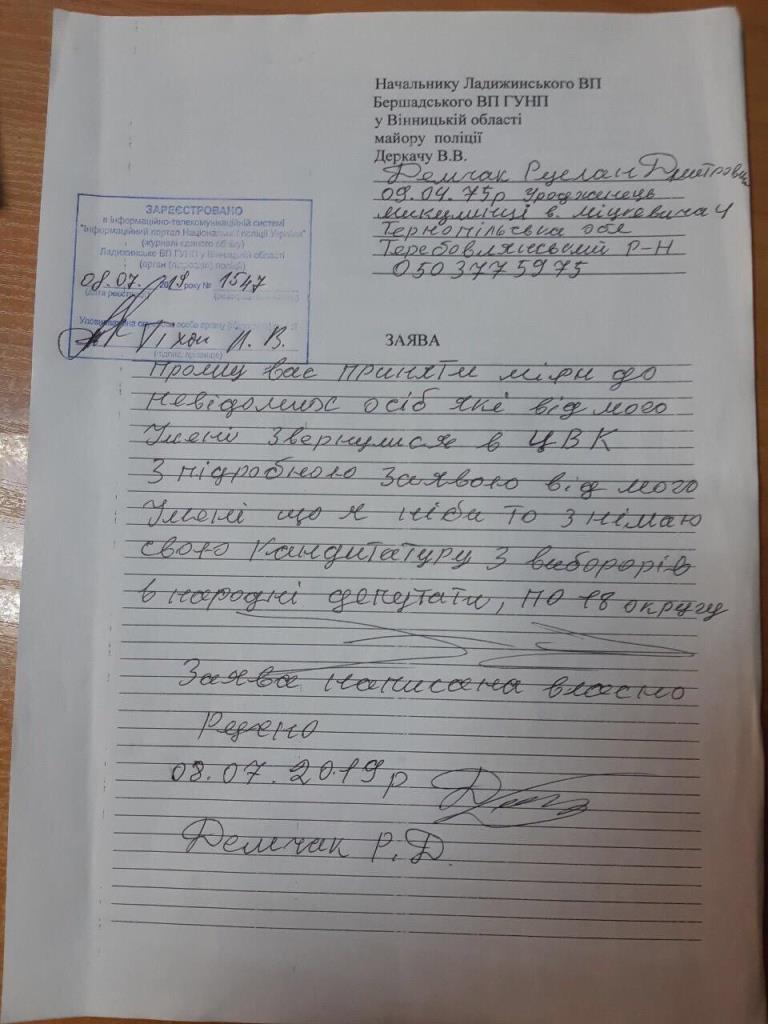 Начальнику Ладижинського ВП
Бершадського ВП ГУНП
у Вінницькій області
майору поліції
Деркачу В.В.
Демчак Руслан Дмитрович
09.04.75р Уродженець
микулинці в. міцкевича 4
Тернопільська обл
Теребовлянський Р-Н
0503775975
ЗАРЕЄСТРОВАНО
в інформаційно-телекомунікаційній системі
"Інформаційний портал Національної поліції України"
(журналі єдиного обліку)
Ладижинське ВП ГУНП у Вінницькій області
(орган (підрозділ) поліції)
08.07. 2019 року № 1547
(дата реєстрації)
Уповноважена особа органу
Тіхон В.
(підпис, прізвище)
ЗАЯВА
Прошу вас приняти міри до
невідомих осіб які від мого
Імені звернулися в ЦВК
З підробною заявою від мого
Імені що я ніби то знімаю
свою кандитатуру з виборорів
в народні депутати, по 18 округу
Заява написана власно
Ручно
08.07.2019р
Демчак Р.Д.